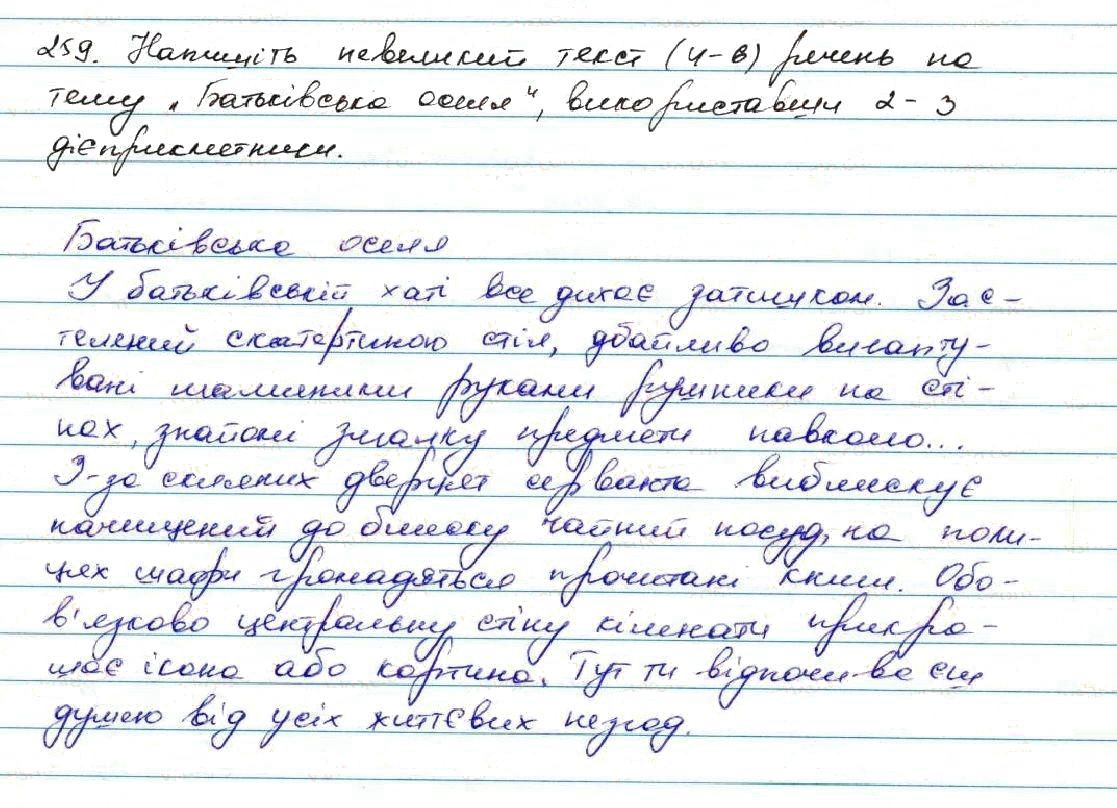 259. Напишіть невеликий текст (4-6) речень на
тему „Батьківська оселя", використавши 2-3
дієприкметники.
Батьківська оселя
У батьківській хаті все дихає затишком. Зас-
телений скатертиною стіл, дбайливо вигапту-
вані мамиными руками рушники на сті-
нах, знайомі змалку предмети навколо...
З-за скляних дверцят серванта виблискує
начищений до блиску чайний посуд, на поли-
цях шафи громадяться прочитані книги. Обо-
в'язково центральну стіну кімнати прикра-
шає ікона або картина. Тут ти відпочиваєш
душею від усіх життєвих незгод.